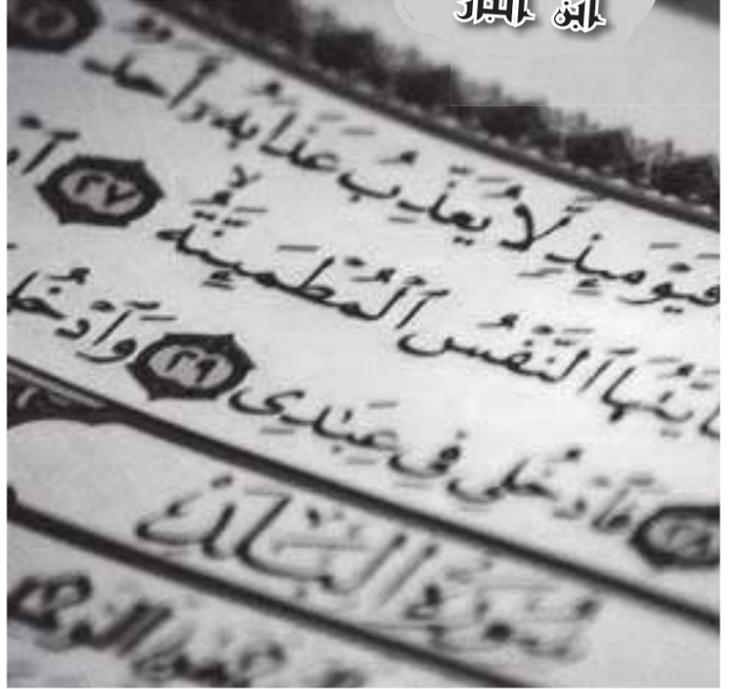 ابن البار
فيومئذ لا يعذب عذابه أحد ٢٥
يأيتها النفس المطمئنة ٢٧
٢٨ فادخلي في عبدي ٢٩ وادخلي
سورة البلد